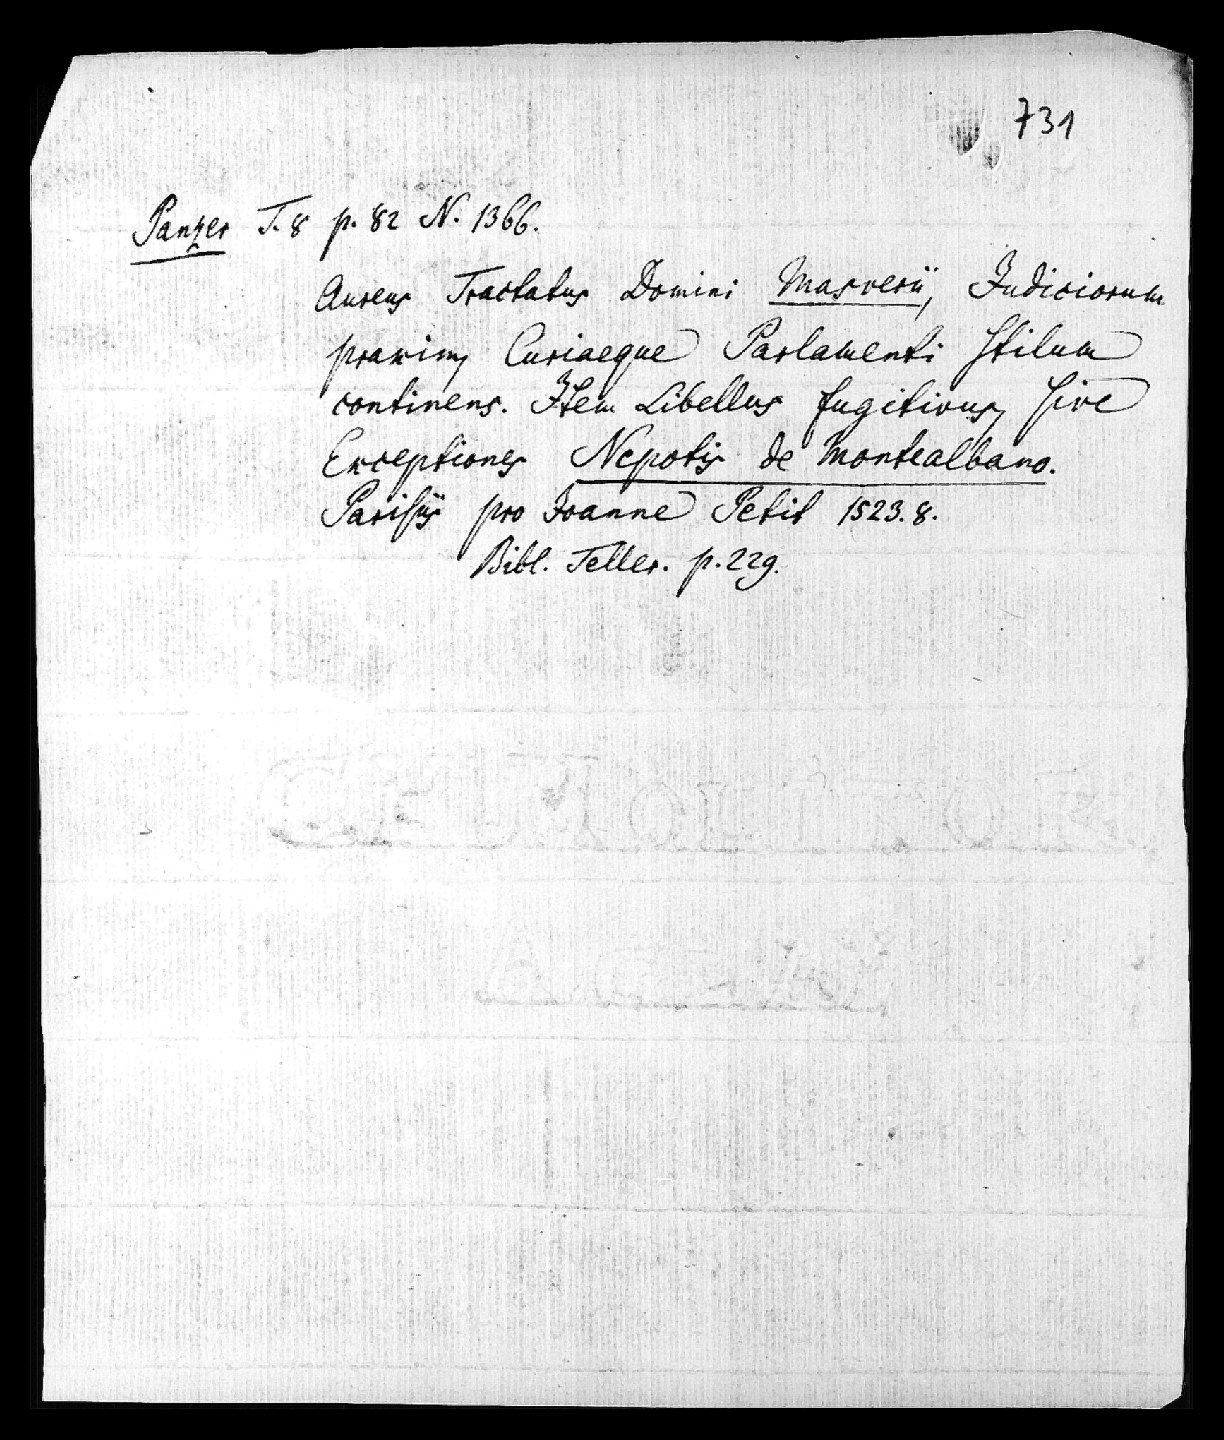 731
Panzer T. 8 p. 82 N. 1366.
Aureus Tractatus Domini Masverii, Judiciorum
praxim, Curiaeque Parlamenti stilum
continens. Item Libellus fugitivus, sive
Exceptiones Nepotis de Montealbano.
Parisiis pro Joanne Petit 1523. 8.
Bibl. Teller. p. 229.